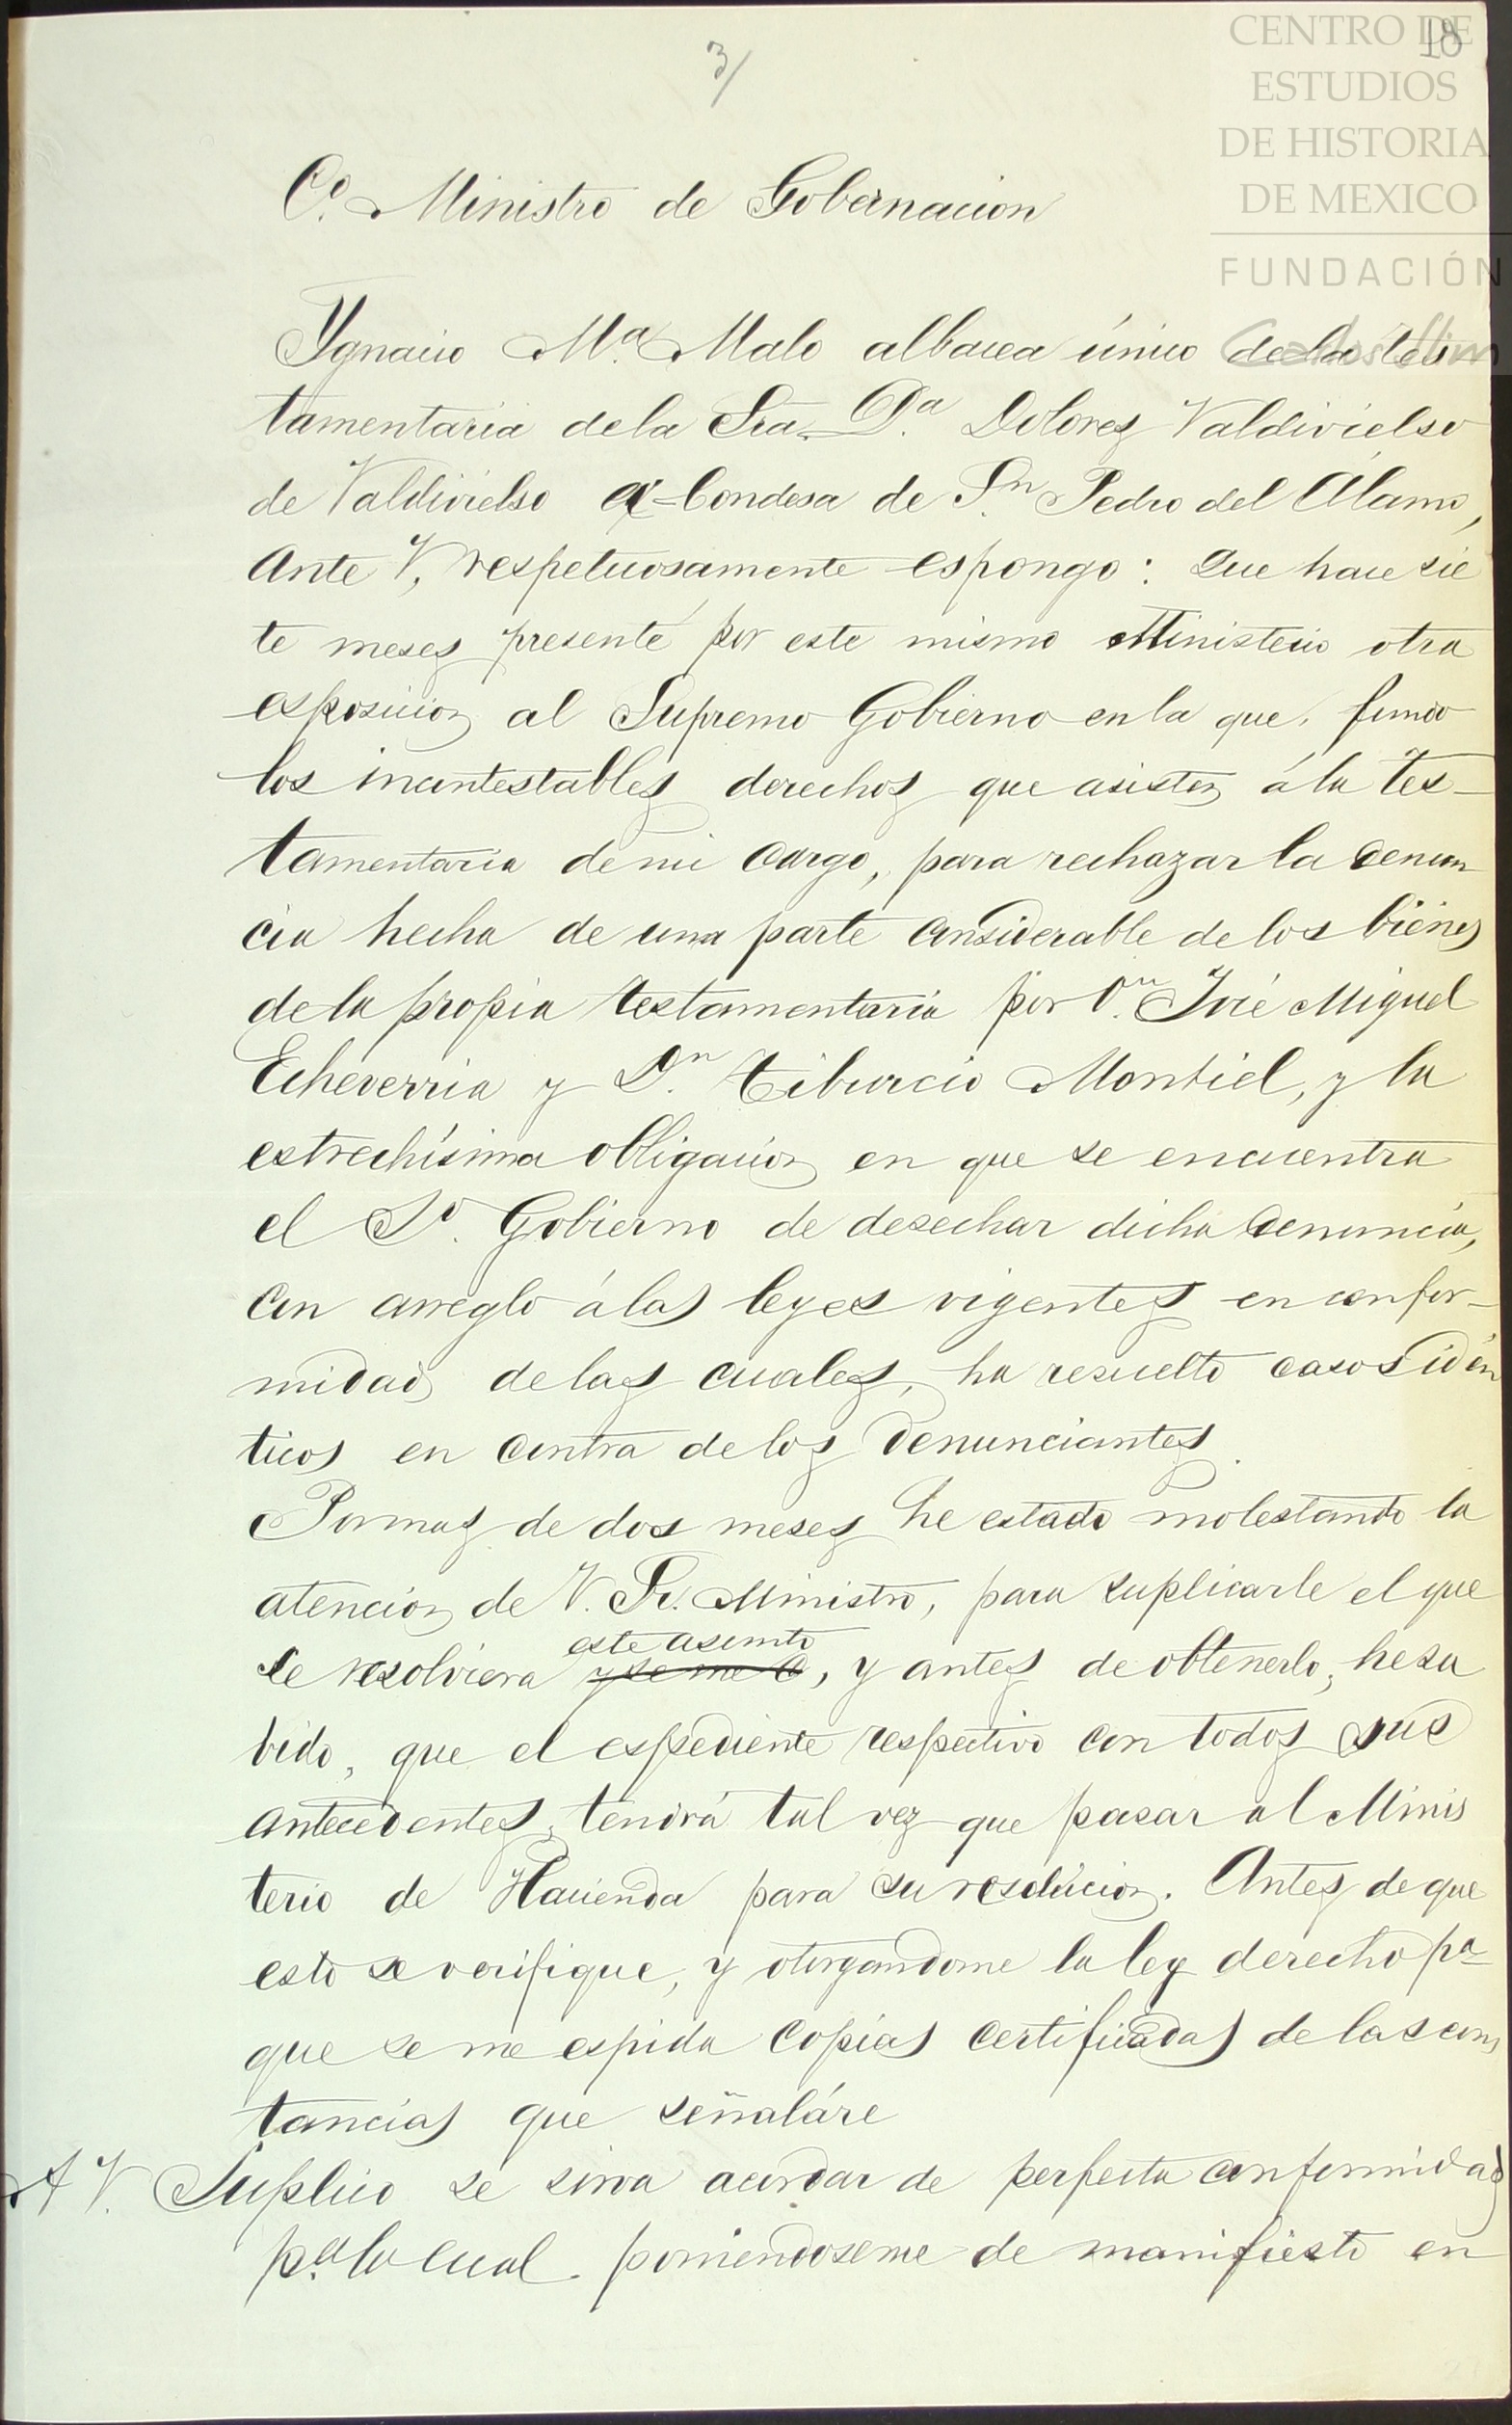 3/
18
CENTRO DE
ESTUDIOS
DE HISTORIA
DE MEXICO
FUNDACIÓN
Carlos Slim
C.º Ministro de Gobernacion
Ygnacio M.ª Malo albacea único de la tes
tamentaria de la Sra. D.ª Dolores Valdivielso
de Valdivielso ex-Condesa de S.n Pedro del Álamo,
ante V, respetuosamente espongo: Que hace sie
te meses presenté por este mismo Ministerio otra
esposicion al Supremo Gobierno en la que, fundo
los incontestables derechos que asisten á la tes-
tamentaria de mi cargo, para rechazar la denun
cia hecha de una parte considerable de los bienes
de la propia testamentaria por D.n José Miguel
Echeverria y D.n Tiburcio Montiel, y la
estrechísima obligacion en que se encuentra
el S.º Gobierno de desechar dicha denuncia,
con arreglo á las leyes vigentes en confor-
midad de las cuales, ha resuelto casos idén
ticos en contra de los denunciantes.
Por mas de dos meses he estado molestando la
atencion de V. Sr. Ministro, para suplicarle el que
este asunto
se resolviera y se me, y antes de obtenerlo, he sa
bido, que el espediente respectivo con todos sus
antecedentes, tendrá tal vez que pasar al Minis
terio de Hacienda para su resolucion. Antes de que
esto se verifique, y otorgandome la ley derecho pa
que se me espida copias certificadas de las cons
tancias que señaláre
A V. Suplico se sirva acordar de perfecta conformidad
p.ª lo cual poniendoseme de manifiesto en